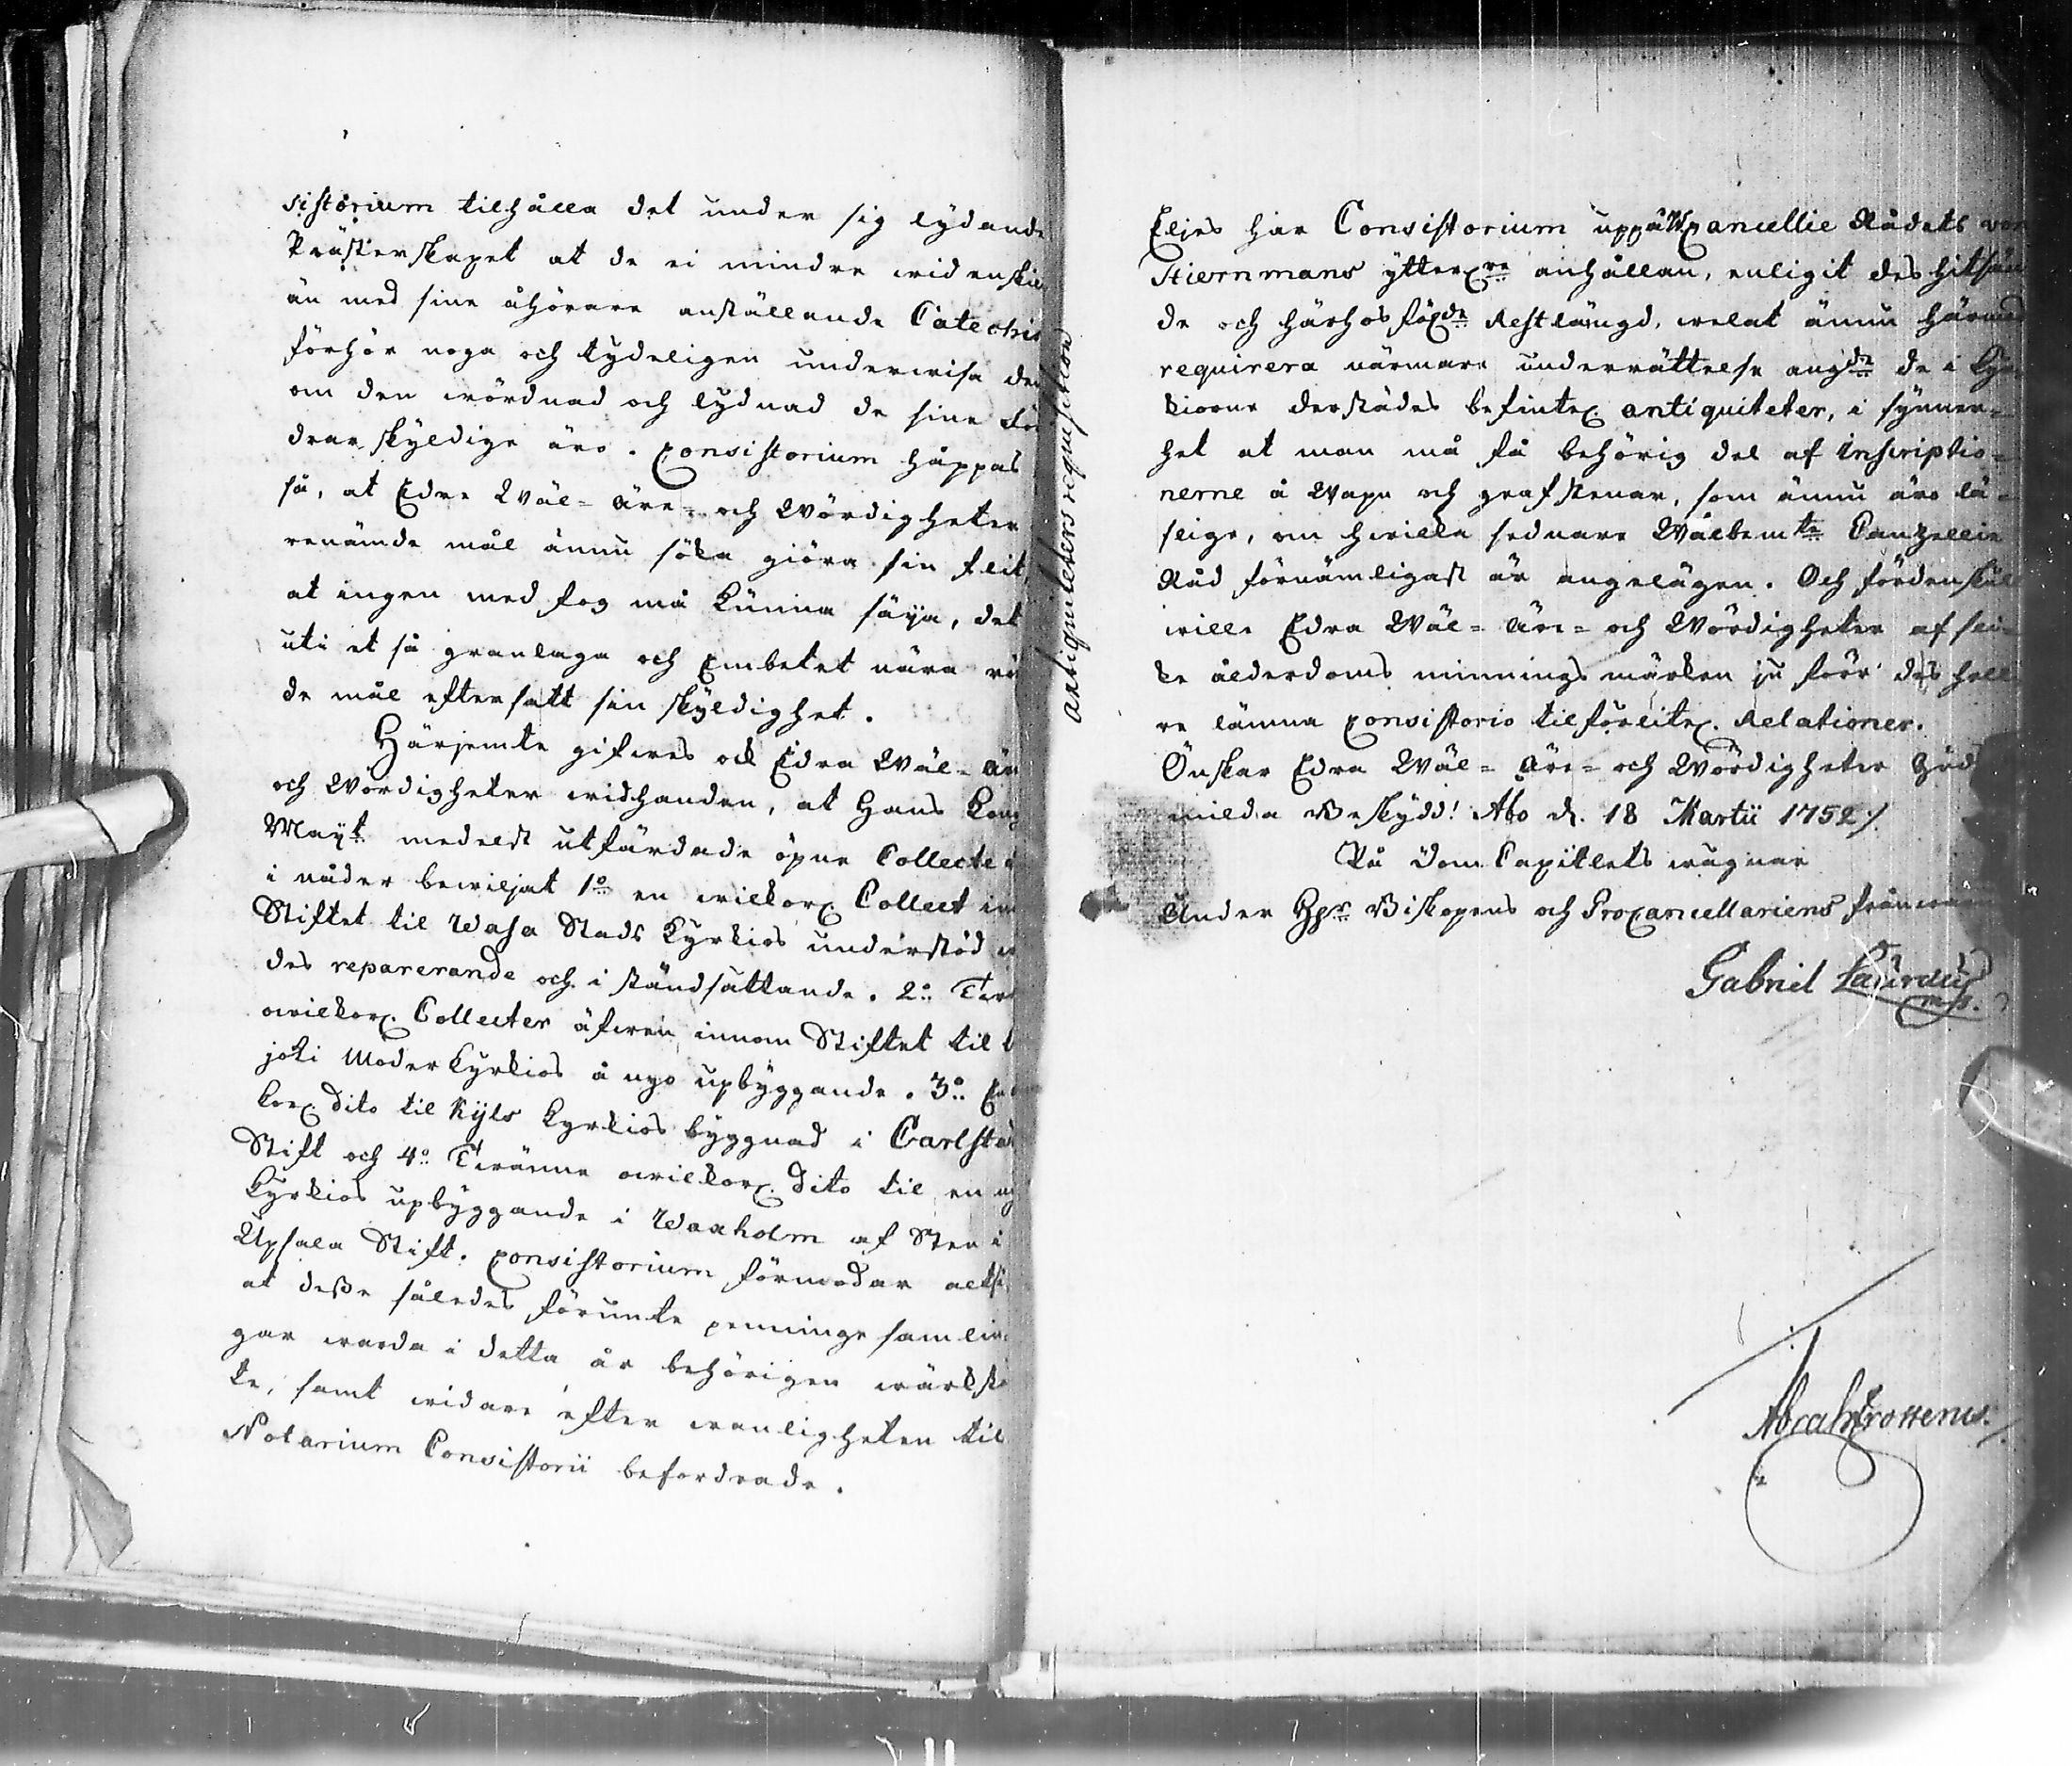 sistorium tilhålla det under sig lydande
Prästerskapet at de ei mindre wid enskil
än med sine åhörare anställande Catechis
förhör noga och tydeligen underwisa dem
om den wördnad och lydnad de sine För
drar skyldige äro. Consistorium håppas
så, at Edre Wäl- Äre- och Wördigheter
renämde mål ännu söka giöra sin flit,
at ingen med fog må kunna säya, det
uti et så granlaga och Embetet nära rö
de mål eftersatt sin skyldighet.
Härjemte gifwes ock Edra Wäl- Är
och Wördigheter widhanden, at Hans Kong
Mayt medelst utfärdade öpne Collecte
i nåder bewiljat 1o en wilkorl. Collect in
Stiftet til Wasa Stads Kyrkios understöd
des reparerande och i ståndsättande. 2o Twe
owilkorl. Collecter äfwen innom Stiftet til
joki Moder Kyrkios å nyo upbyggande. 3o En
korl. dito til Kyls Kyrkios byggnad i Carlstad
Stift och 4o Twänne owilkorl. dito til en ny
Kyrkios upbyggande i Waxholm af Sten i
Upsala Stift. Consistorium förmodar altså
at desse således förunte penninge samlin
gar warda i detta år behörigen wärkstä
te, samt widare efter wanligheten til
Notarium Consistorii befordrade.
Antiquiteters requisition
Eljes har Consistorium uppå H Cancellie Rådets von
Stiernmans ytterl.re anhållan, enligit des hitsän
de och härhos följde Restlängd, welat ännu härmed
requirera närmare underrättelse angde de i Kyr
kiorne derstädes befintel. antiquiteter, i synner-
het at man må få behörig del af Inscriptio-
nerne å Wapn och grafstenar, som ännu äro lä-
slige, om hwilka sednare Wälbemte Cantzellie
Råd förnämligast är angelägen. Och fördenskul
wille Edra Wäl- Äre- och Wördigheter af sli-
ke ålderdoms minnings märken ju förr des hell
re lämna Consistorio tilförlitel. Relationer.
Önskar Edra Wäl- Äre- och Wördigheter Gud
milda Beskydd! Åbo d. 18 Martii 1752.
På Dom Capitlets wägnar
Under Hr Biskopens och Procancellariens frånwaro
Gabriel Lauræus
mp.
Abrah Frosterus